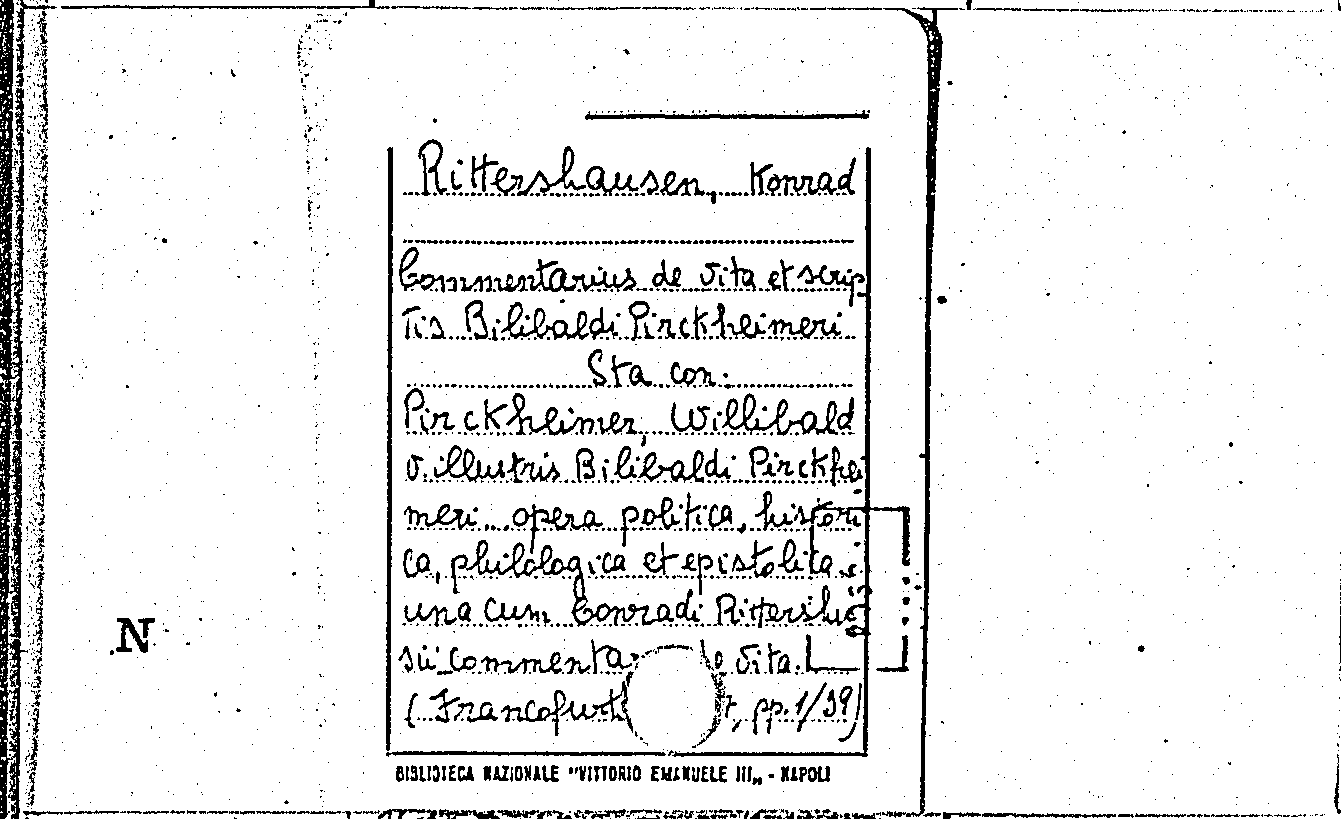 Rittershausen, Konrad
Commentarius de vita et scrip
tis Bilibaldi Pirckheimeri
Sta con:
Pirckheimer, Willibald
v. illustris Bilibaldi Pirckhei
meri... opera politica, histori
ca, philologica et epistolica
una cum Conradi Rittershu
sii commentar de vita.
(Francofurt , pp. 1/39)
N
BIBLIOTECA NAZIONALE "VITTORIO EMANUELE III„ - NAPOLI